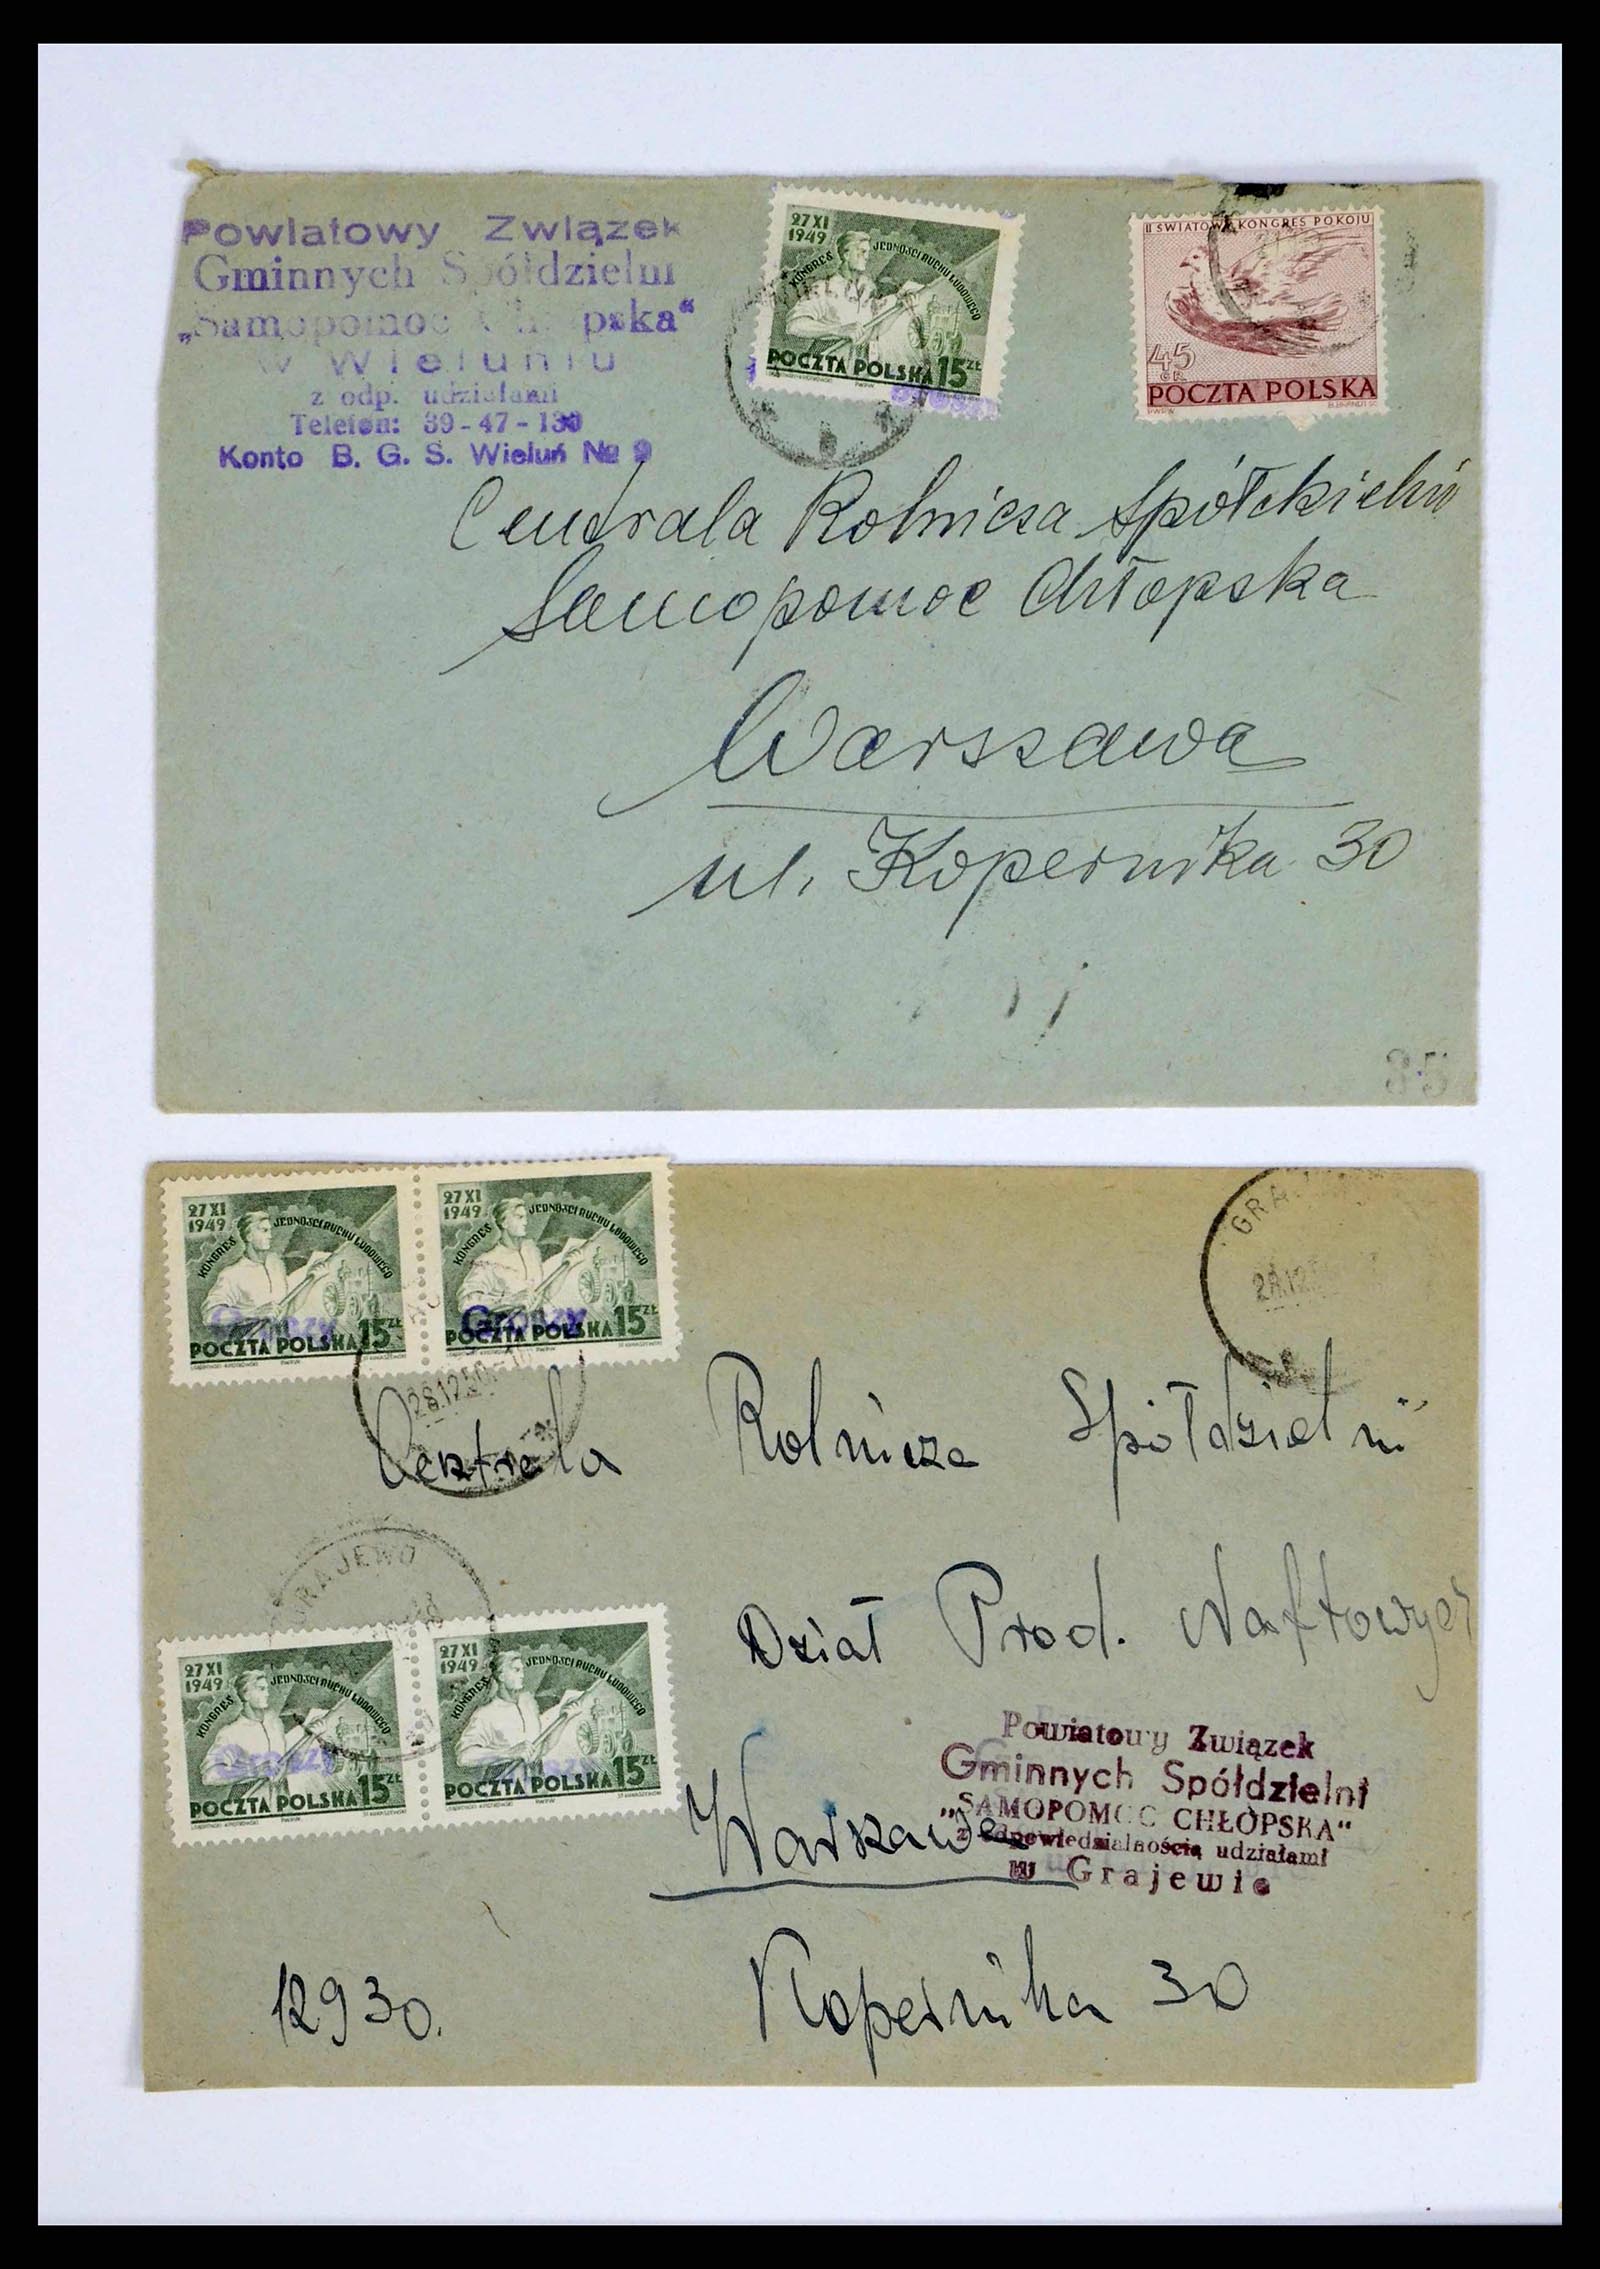 Powiatowy Związek
Gminnych Spółdzielni
„Samopomoc Chłopska“
w Wieluniu
z odp. udziałami
Telefon: 39-47-130
Konto B. G. S. Wieluń № 9
27 XI
1949
KONGRES JEDNOŚCI RUCHU LUDOWEGO
POCZTA POLSKA 15 ZŁ
Groszy
II ŚWIATOWY KONGRES POKOJU
45
GR.
POCZTA POLSKA
Centrala Rolnicza
Samopomoc Chłopska
Warszawa
ul. Kopernika 30
35
27 XI
1949
KONGRES JEDNOŚCI RUCHU LUDOWEGO
Groszy
POCZTA POLSKA 15 ZŁ
27 XI
1949
KONGRES JEDNOŚCI RUCHU LUDOWEGO
Groszy
POCZTA POLSKA 15 ZŁ
GRA
28.12.5
28.12.50
Centrala Rolnicza Spółdzielni
GRAJEWO
Dział Prod. Naftowych
27 XI
1949
KONGRES JEDNOŚCI RUCHU LUDOWEGO
Groszy
POCZTA POLSKA 15 ZŁ
27 XI
1949
KONGRES JEDNOŚCI RUCHU LUDOWEGO
Groszy
POCZTA POLSKA 15 ZŁ
Powiatowy Związek
Gminnych Spółdzielni
„SAMOPOMOC CHŁOPSKA“
z odpowiedzialnością udziałami
w Grajewie
Warszawa
Kopernika 30
12930.